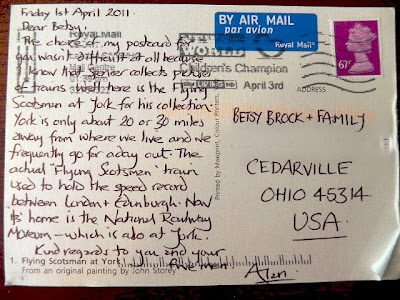 Friday 1st April 2011.
Dear Betsy,
The choice of my postcard for
you wasn't difficult at all because
I know that Senior collects pictures
of trains. Well here is the Flying
Scotsman at York for his collection.
York is only about 20 or 30 miles
away from where we live and we
frequently go for a day out. The
actual "Flying Scotsman" train
used to hold the speed record
between London + Edinburgh. Now
its' home is the National Railway
Museum - which is also at York.
Kind regards to you and your
men
Alan
1. Flying Scotsman at York
From an original painting by John Storey
Royal Mail
Mail Centre
Printed by Maxprint, Colour Printers,
BY AIR MAIL
par avion
Royal Mail
WORLD
Children's Champion
April 3rd
67P
ADDRESS
BETSY BROCK + FAMILY
CEDARVILLE
OHIO 45314
USA.